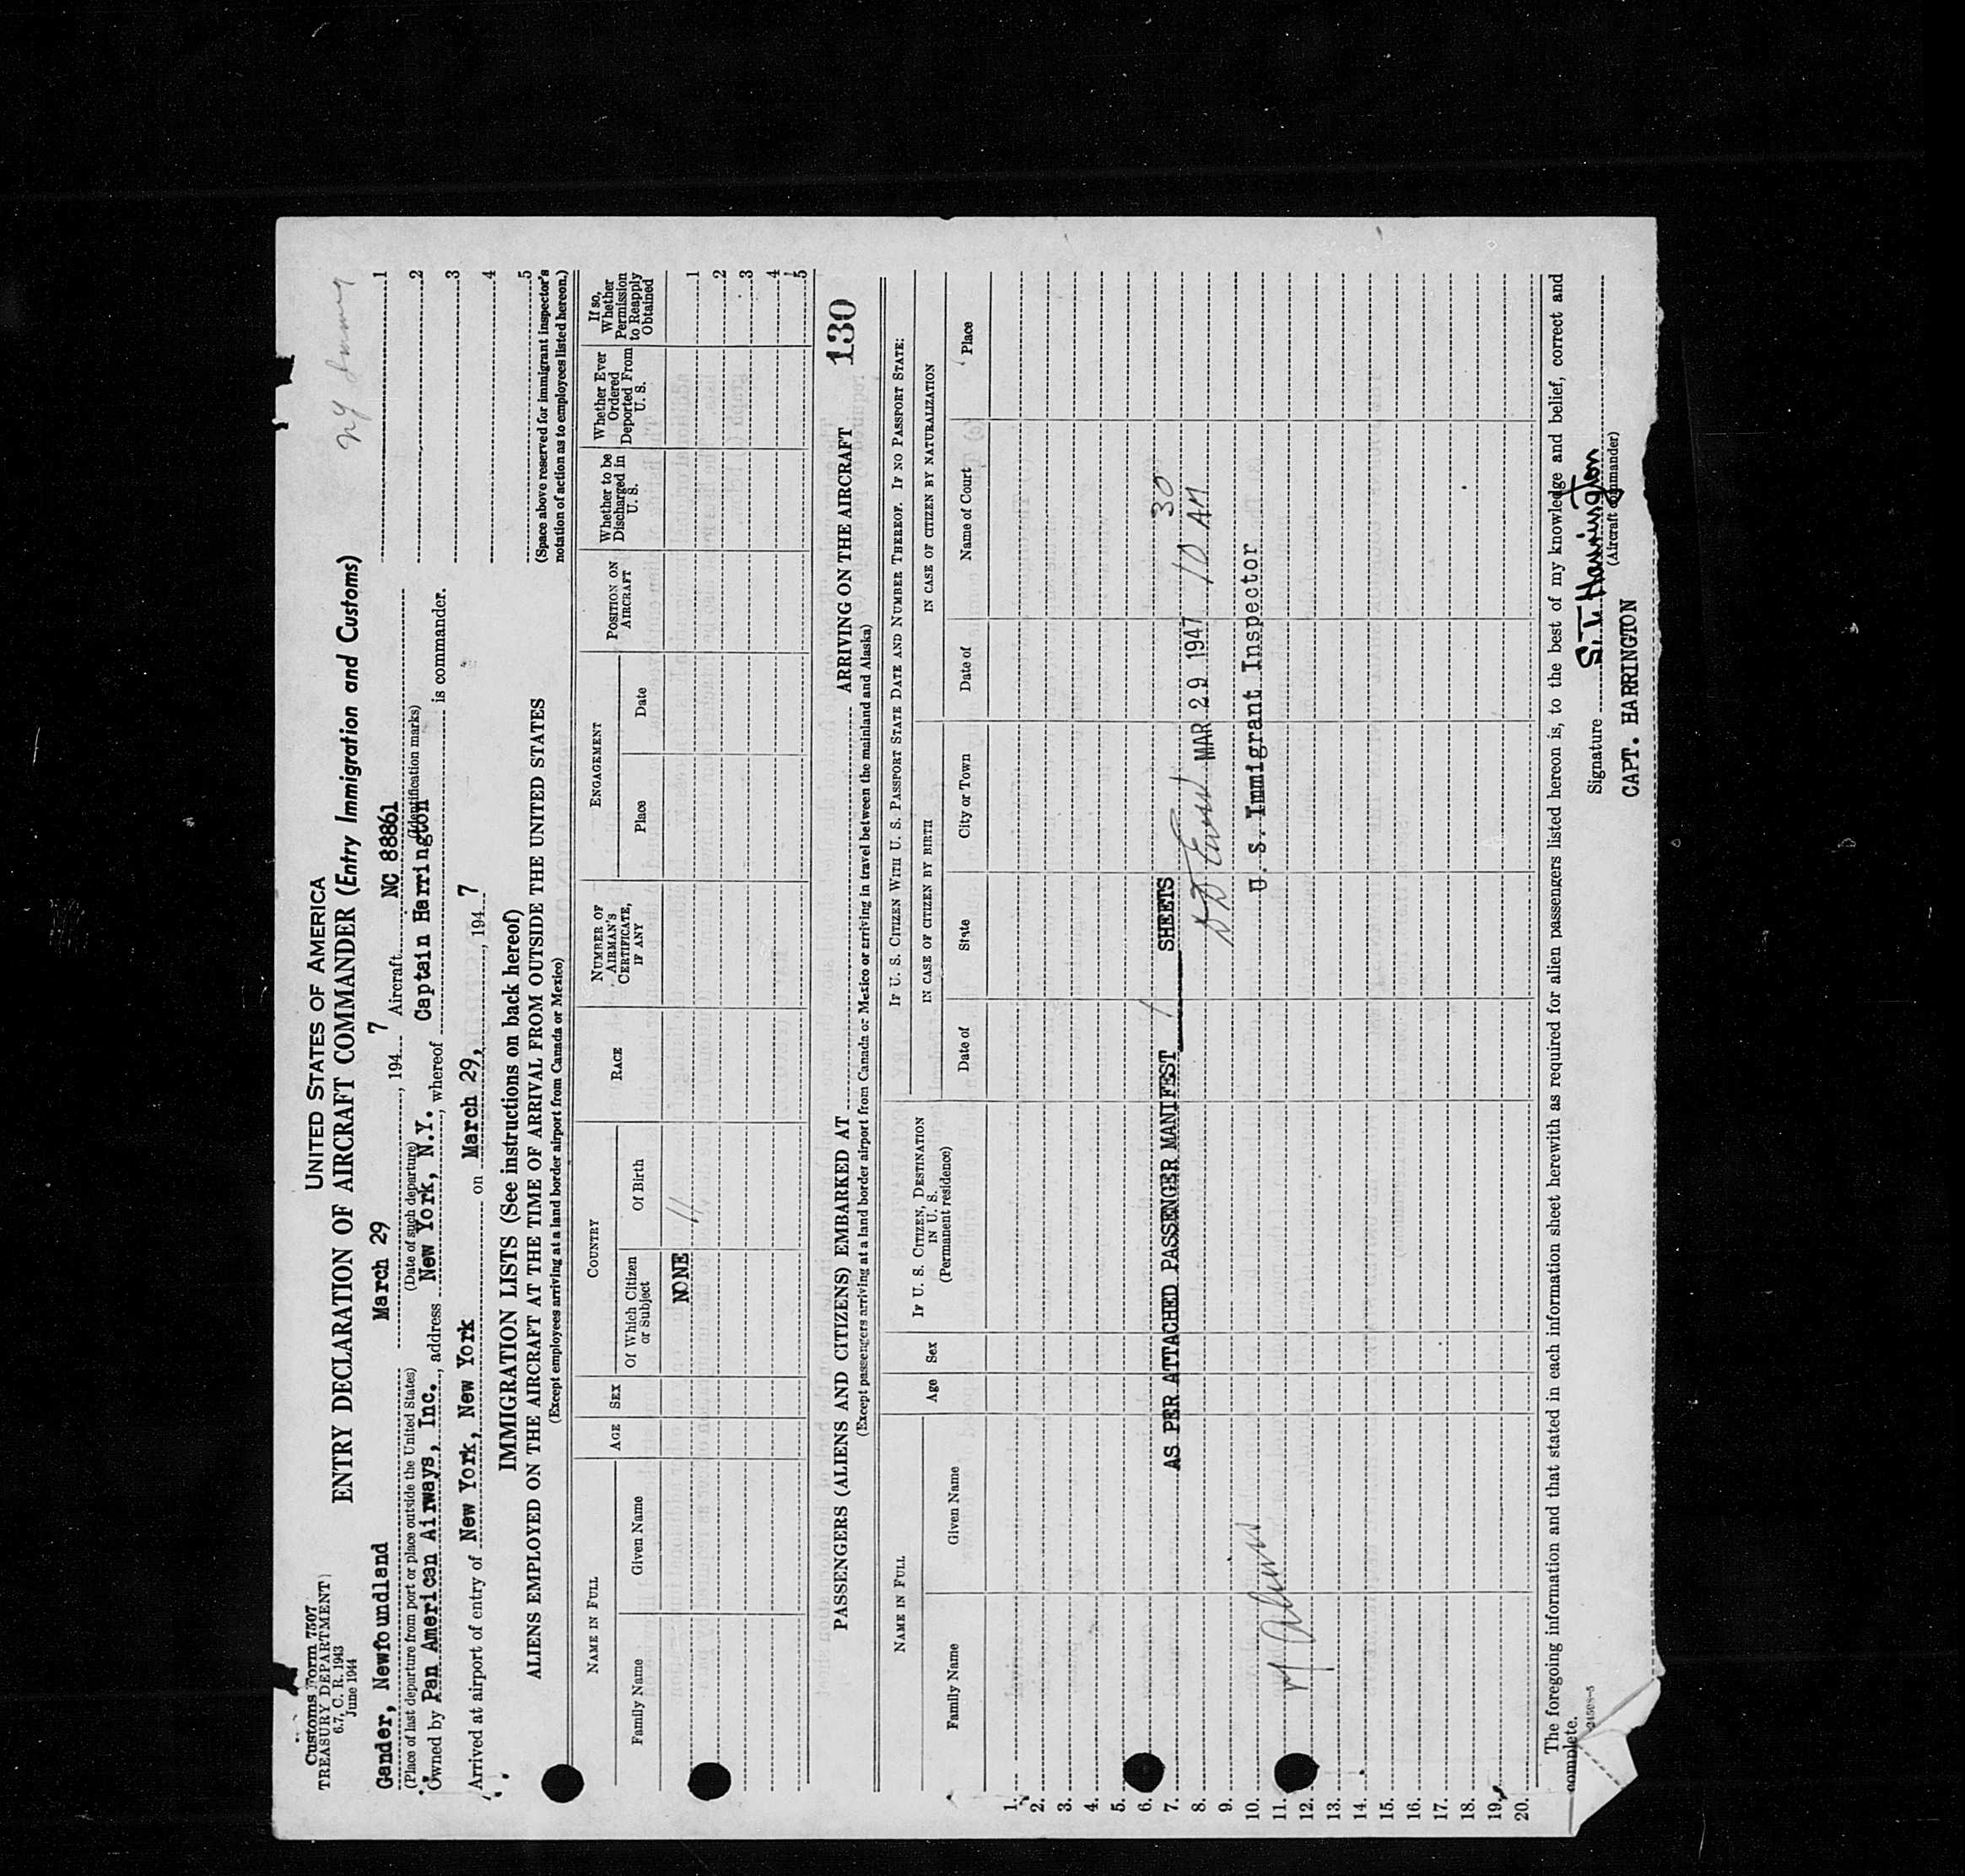 Customs Form 7507
TREASURY DEPARTMENT
6.7, C. R. 1943
June 1944
UNITED STATES OF AMERICA
ENTRY DECLARATION OF AIRCRAFT COMMANDER (Entry Immigration and Customs)
Gander, Newfoundland March 29, 1947 Aircraft NC 88861
(Place of last departure from port or place outside the United States) (Date of such departure) (Identification marks)
Owned by Pan American Airways, Inc., address New York, N.Y., whereof Captain Harrington is commander.
Arrived at airport of entry of New York, New York on March 29, 1947
1
2
3
4
5
(Space above reserved for immigrant inspector's
notation of action as to employees listed hereon.)
IMMIGRATION LISTS (See instructions on back hereof)
ALIENS EMPLOYED ON THE AIRCRAFT AT THE TIME OF ARRIVAL FROM OUTSIDE THE UNITED STATES
(Except employees arriving at a land border airport from Canada or Mexico)
NAME IN FULL
Family Name Given Name
AGE
SEX
COUNTRY
Of Which Citizen or Subject
Of Birth
RACE
NUMBER OF AIRMAN'S CERTIFICATE, IF ANY
ENGAGEMENT
Place Date
POSITION ON AIRCRAFT
Whether to be Discharged in U. S.
Whether Ever Ordered Deported From U. S.
If so, Whether Permission to Reapply Obtained
NONE
1
2
3
4
5
PASSENGERS (ALIENS AND CITIZENS) EMBARKED AT ARRIVING ON THE AIRCRAFT 130
(Except passengers arriving at a land border airport from Canada or Mexico or arriving in travel between the mainland and Alaska)
NAME IN FULL
Family Name Given Name
Age
Sex
IF U. S. CITIZEN, DESTINATION IN U. S.
(Permanent residence)
IF U. S. CITIZEN WITH U. S. PASSPORT STATE DATE AND NUMBER THEREOF. IF NO PASSPORT STATE:
IN CASE OF CITIZEN BY BIRTH
IN CASE OF CITIZEN BY NATURALIZATION
Date of State City or Town Date of Name of Court Place
1.
2.
3.
4.
5.
6.
7. AS PER ATTACHED PASSENGER MANIFEST 1 SHEETS
8. MAR 29 1947 10 30 AM
9.
10. U. S. Immigrant Inspector
11.
12.
13.
14.
15.
16.
17.
18.
19.
20.
The foregoing information and that stated in each information sheet herewith as required for alien passengers listed hereon is, to the best of my knowledge and belief, correct and
complete.
Signature S.T. Harrington
(Aircraft commander)
CAPT. HARRINGTON